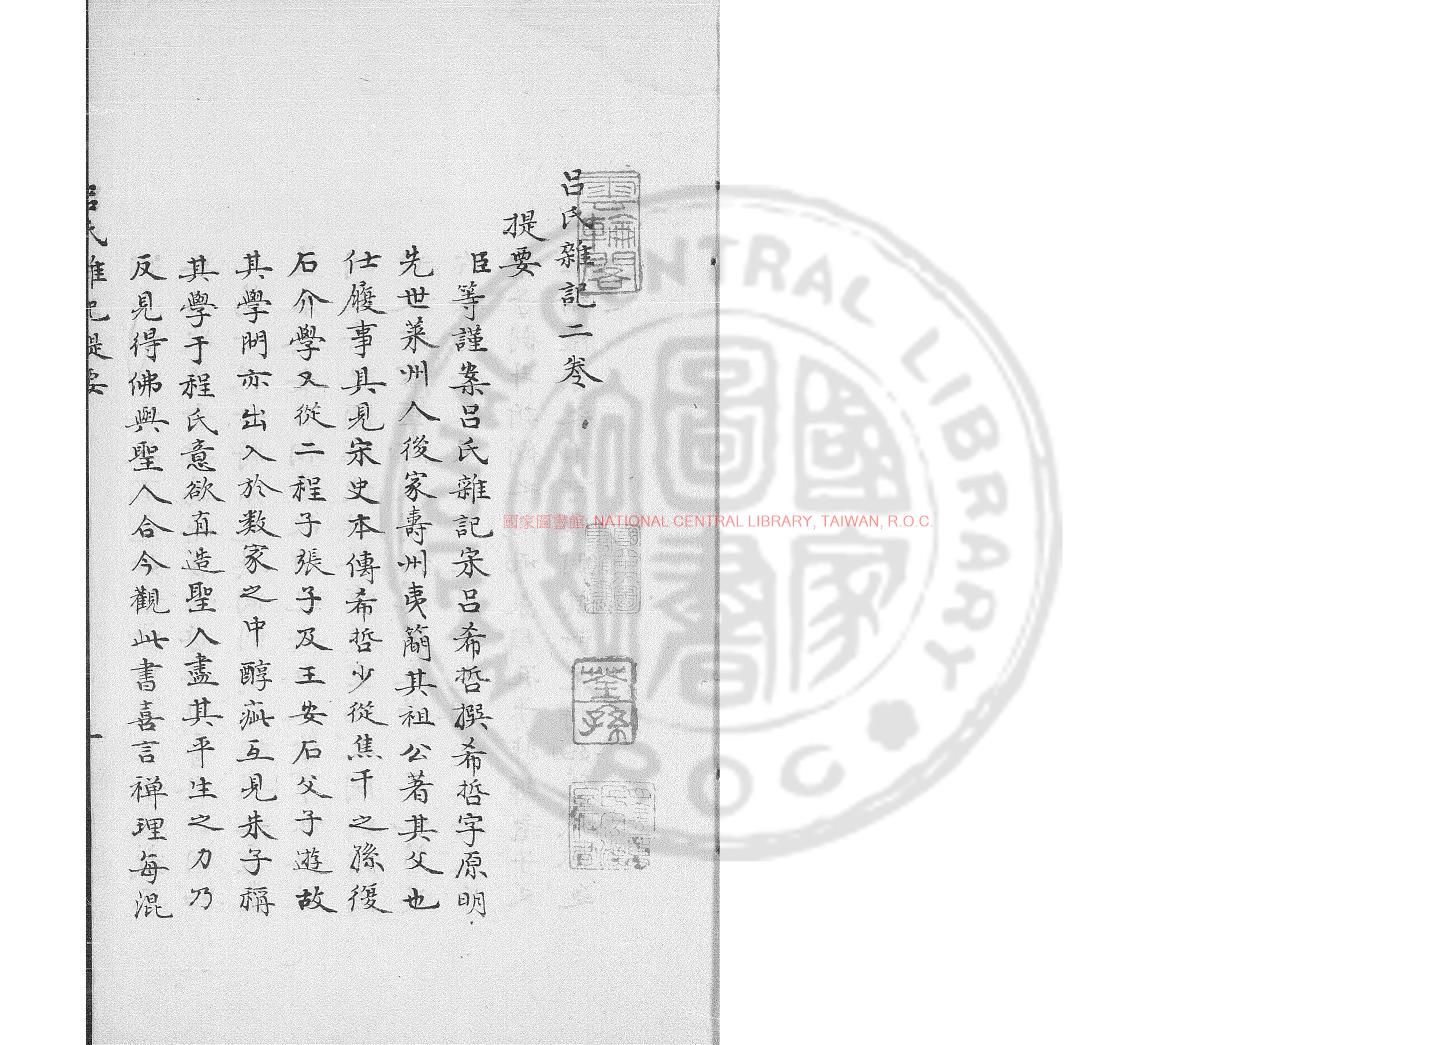 呂氏雜記二卷
提要
臣等謹案呂氏雜記宋呂希哲撰希哲字原明
先世萊州人後家壽州夷簡其祖公著其父也
仕履事具見宋史本傳希哲少從焦千之孫復
石介學又從二程子張子及王安石父子遊故
其學問亦出入於數家之中醇疵互見朱子稱
其學于程氏意欲直造聖人盡其平生之力乃
反見得佛與聖人合今觀此書喜言禅理每混
呂氏雜記提要
一
雲輪閣
荃孫
國家圖書館, NATIONAL CENTRAL LIBRARY, TAIWAN, R.O.C.
CENTRAL LIBRARY
ROC
國家圖書